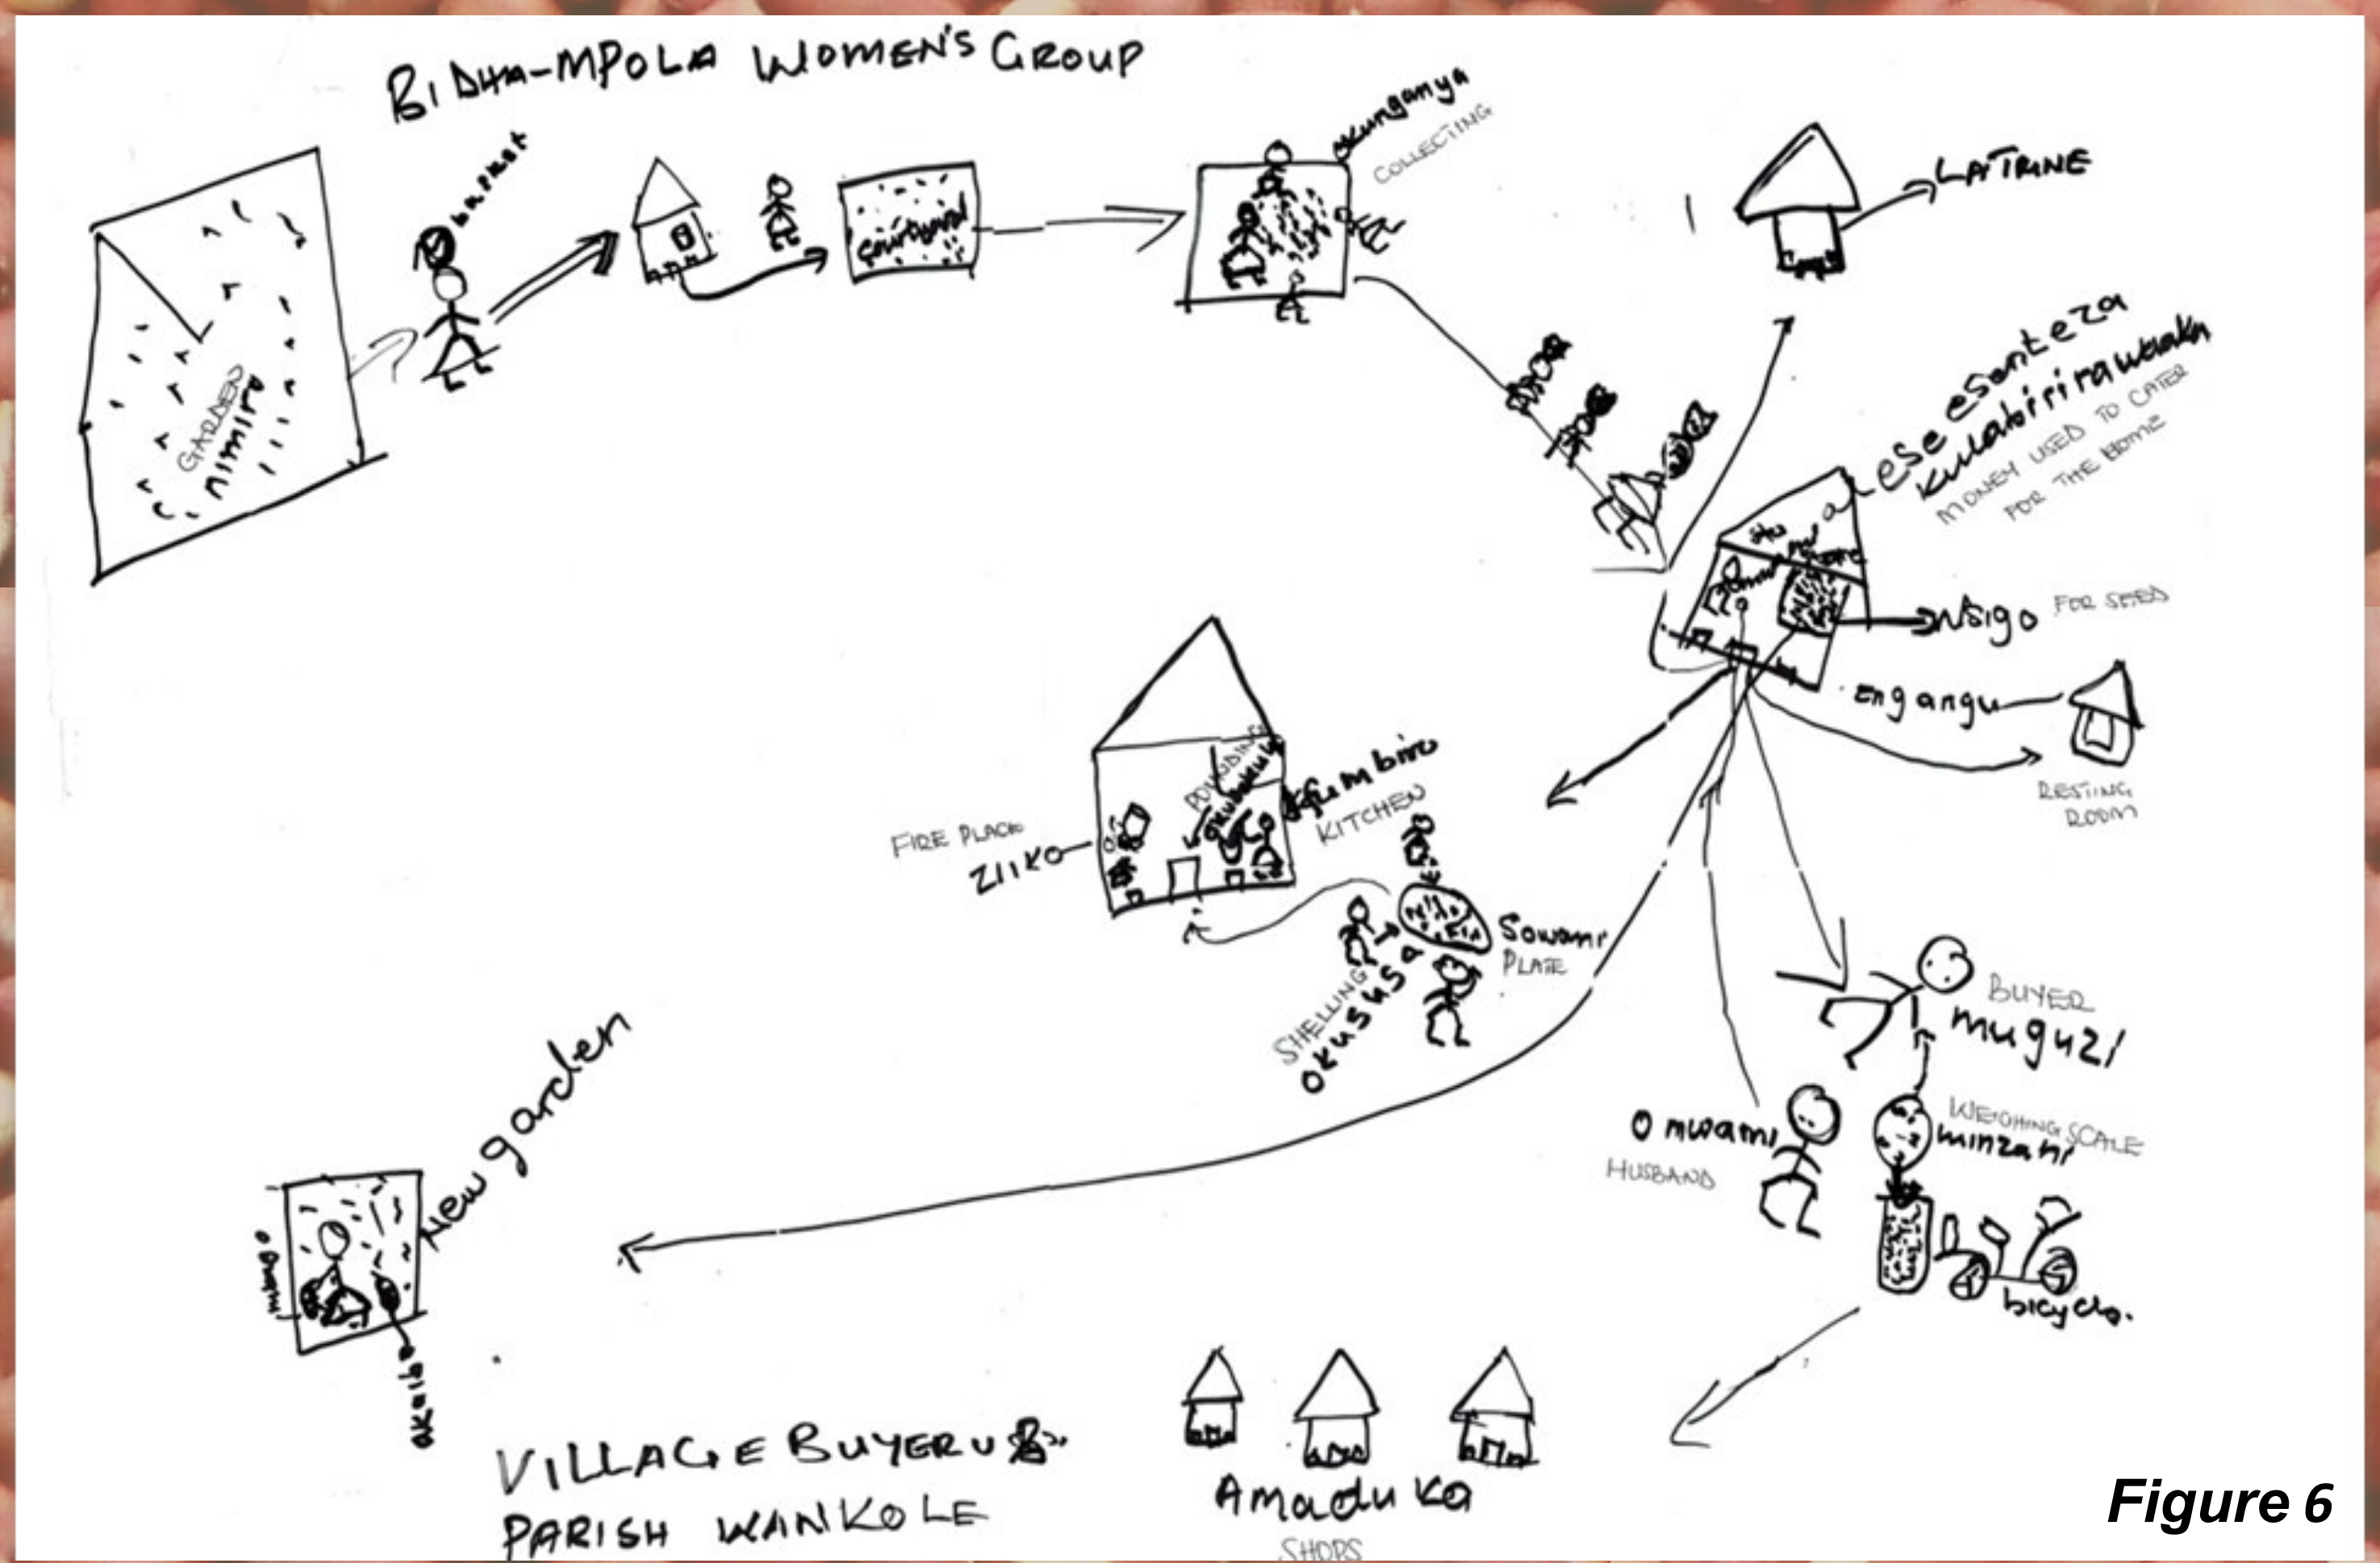 BIDHA-MPOLA WOMEN'S GROUP
basket
courtyard
okunganya
COLLECTING
LATRINE
GARDEN
nimiro
ese esenteza
MONEY USED TO CATER
FOR THE HOME
Nsigo FOR SEED
Engangu
RESTING
ROOM
POUNDING
KITCHEN
FIRE PLACE
ZIIKO
Sowani
PLATE
SHELLING
OKUSUSA
BUYER
muguzi
Omwami
HUSBAND
WEIGHING SCALE
minzani
bicycle.
New garden
VILLAGE
PARISH WANKOLE
Amaduka
SHOPS
Figure 6